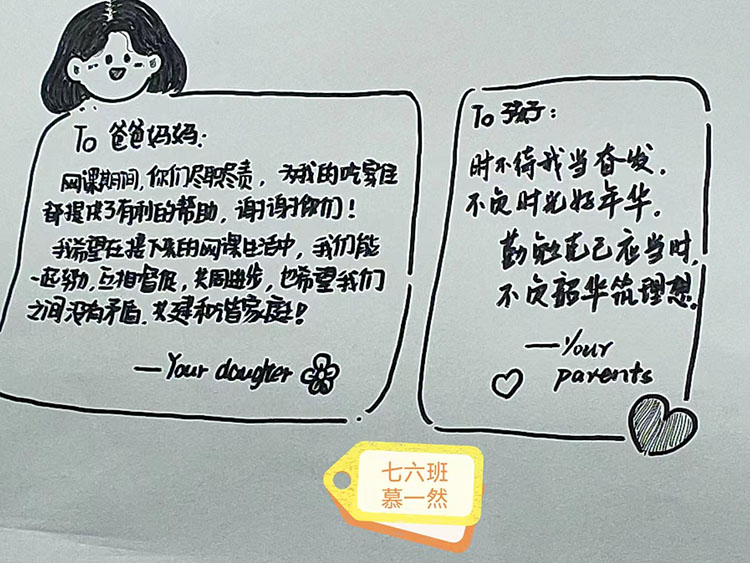 To 爸爸妈妈：
网课期间，你们尽职尽责，为我的吃穿住
都提供了有利的帮助，谢谢你们！
我希望在接下来的网课生活中，我们能
一起努力，互相督促，共同进步，也希望我们
之间没有矛盾，共建和谐家庭！
—Your daugher
To 孩子：
时不待我当奋发，
不负时光好年华。
勤勉克己应当时，
不负韶华筑理想。
—Your
parents
七六班
慕一然